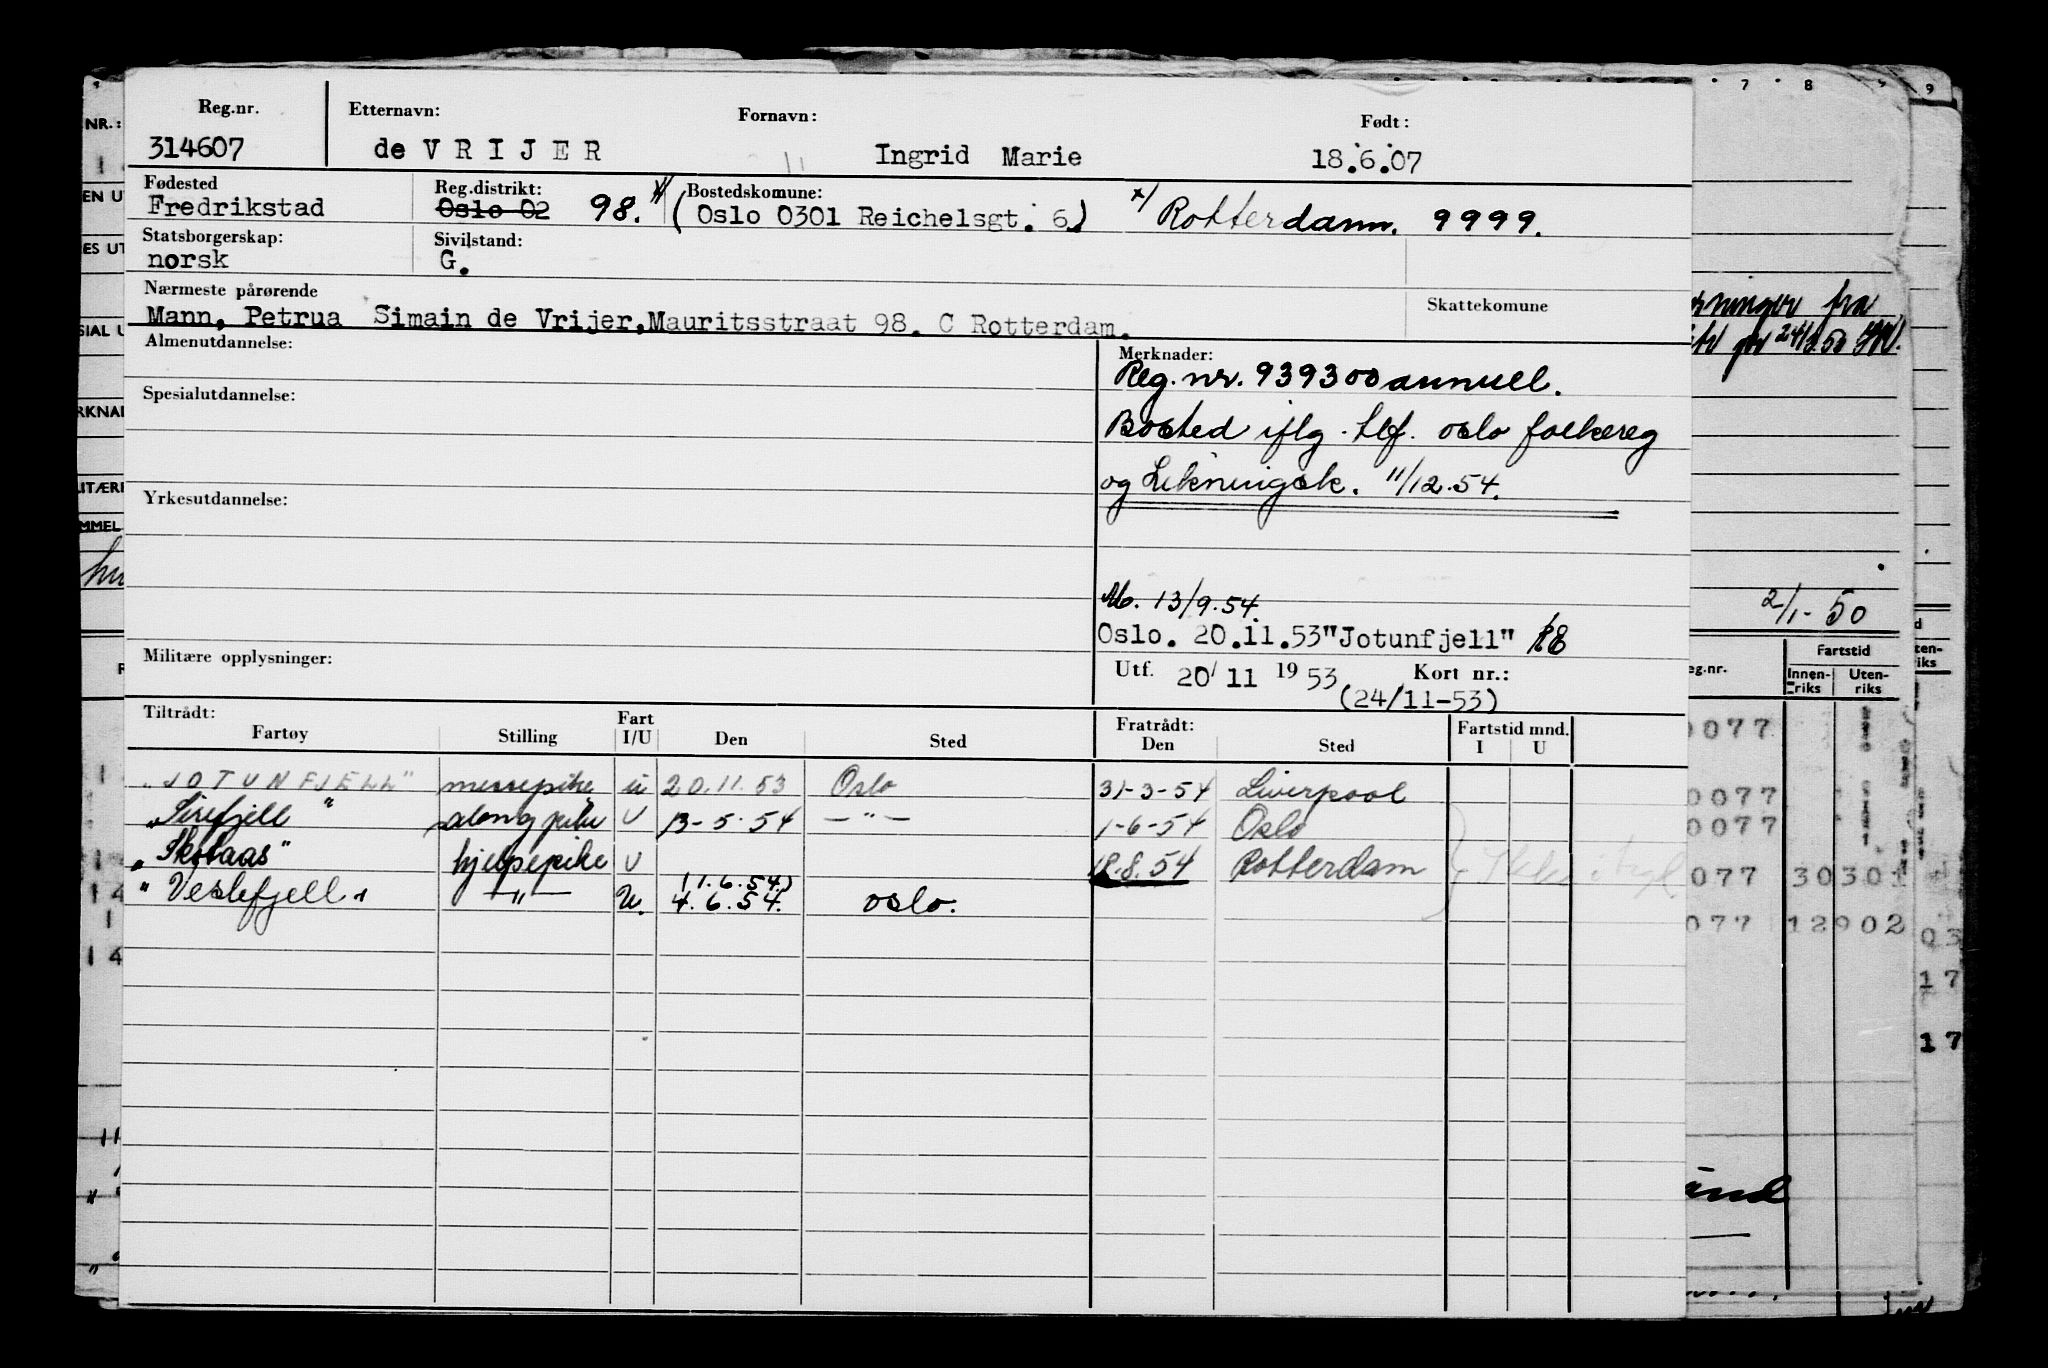 Reg.nr. Etternavn: Fornavn: Født:
314607 de VRIJER Ingrid Marie 18.6.07
Fødested Reg.distrikt: Bostedskommune:
Fredrikstad Oslo 02 98. x) (Oslo 0301 Reichelsgt. 6) x) Rotterdam. 9999.
Statsborgerskap: Sivilstand:
norsk G.
Nærmeste pårørende Skattekomune
Mann, Petrua Simain de Vrijer, Mauritsstraat 98. C Rotterdam.
Almenutdannelse: Merknader:
Reg. nr. 939300 annuell.
Spesialutdannelse:
Bosted iflg. tlf. oslo folkereg
og Likningsk. 11/12.54.
Yrkesutdannelse:
13/9.54.
Oslo. 20.11.53 "Jotunfjell"
Militære opplysninger: Utf. 20/11 1953 Kort nr.:
(24/11-53)
Tiltrådt: Fratrådt: Fartstid mnd.
Fartøy Stilling Fart I/U Den Sted Den Sted I U
"JOTUNFJELL" messepike u 20.11.53 Oslo 31-3-54 Liverpool
"Sirefjell" salongpike U 13-5-54 -"- 1-6-54 Oslo
"Skobaas" hjelpepike U 18.8.54 Rotterdam
(1.6.54)
"Veslefjell" -"- U. 4.6.54. oslo.
7 8 9
NR.:
fra
2/1-50
Fartstid
eg.nr. Innen-riks Uten-riks
0077
0077
0077
077 3030
077 12902
03
17
17